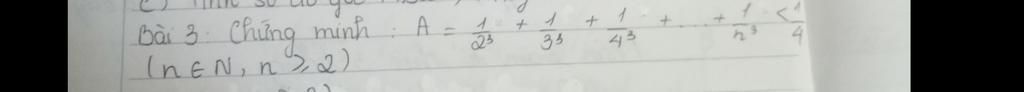 Bài 3: Chứng minh: A = 1/2³ + 1/3³ + 1/4³ + ... + 1/n³ < 1/4
(n ∈ N, n ≥ 2)